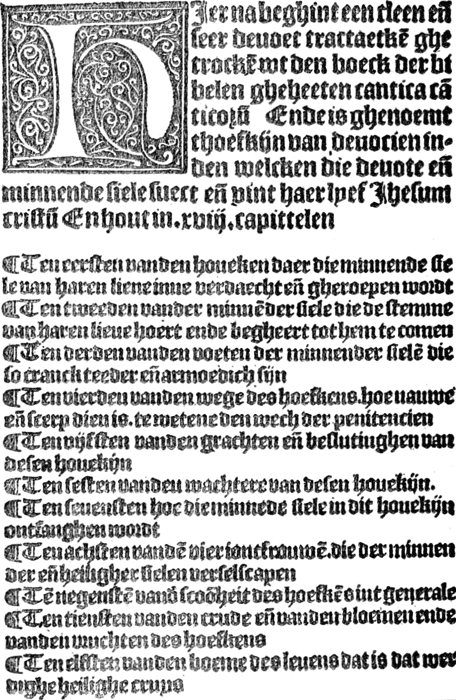 HIer na beghint een cleen eñ
seer deuoet tractaetkē ghe
trockē wt den boeck der bi
belen gheheeten cantica cā
ticorū Ende is ghenoemt
thoefkijn van deuocien in-
den welcken die deuote eñ
minnende siele suect eñ vint haer lyef Jhesum
cristū En hout in .xviij. capittelen
¶ Ten eersten vanden houeken daer die minnende sie
le van haren lieue inne verdaecht eñ gheroepen wordt
¶ Ten tweeden vander minnē der siele die de stemme
van haren lieue hoert ende begheert tot hem te comen
¶ Ten derden vanden voeten der minnender sielē die
so cranck teeder eñ armoedich sijn
¶ Ten vierden vanden wege des hoefkens. hoe nauwe
eñ scerp dien is. te wetene den wech der penitencien
¶ Ten vijfsten vanden grachten eñ beslutinghen van
desen houekijn
¶ Ten sesten vanden wachtere van desen houekijn.
¶ Ten seuensten hoe die minnēde siele in dit houekijn
ontfanghen wordt
¶ Ten achsten vandē vier ioncfrouwē. die der minnen
der eñ heiligher sielen verselscapen
¶ Tē negenstē vandē scoōheit des hoefkēs int generale
¶ Ten tiensten vanden crude eñ vanden bloemen ende
vanden vruchten des hoefkens
¶ Ten elfsten vanden boeme des leuens dat is dat wer
dighe heilighe cruys